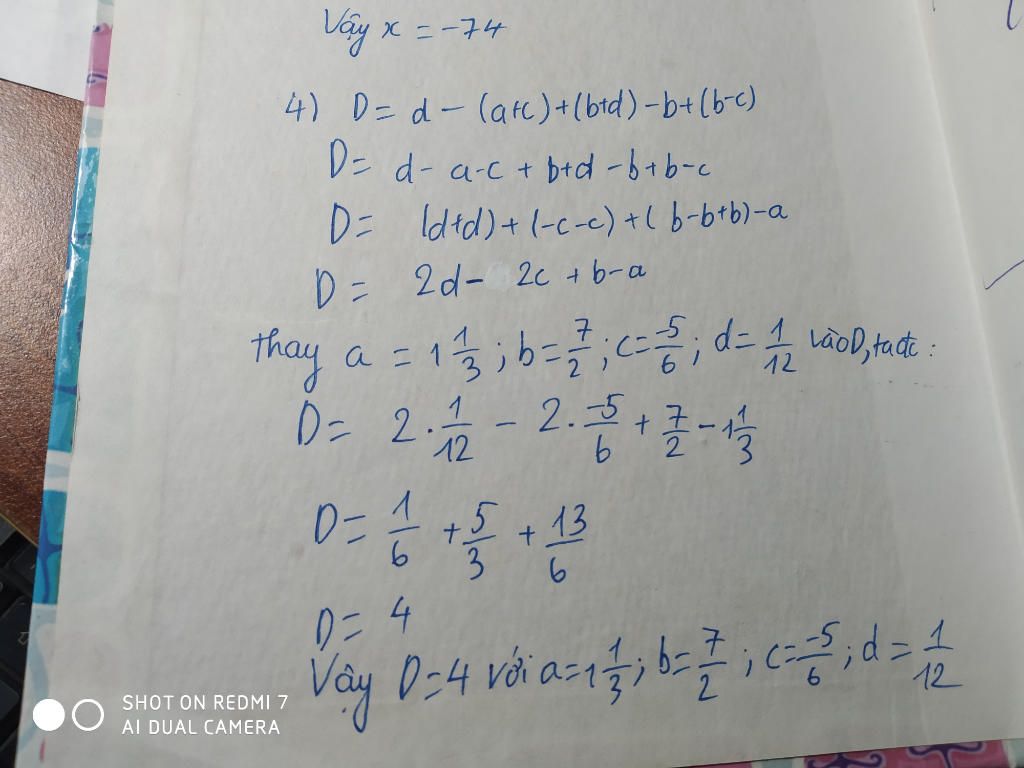 Vậy x = -74
4) D = d - (a+c) + (b+d) - b + (b-c)
D = d - a - c + b + d - b + b - c
D = (d+d) + (-c-c) + (b-b+b) - a
D = 2d - 2c + b - a
thay a = 1 1/3 ; b = 7/2 ; c = -5/6 ; d = 1/12 vào D, ta đc :
D = 2 . 1/12 - 2 . -5/6 + 7/2 - 1 1/3
D = 1/6 + 5/3 + 13/6
D = 4
Vậy D = 4 với a = 1 1/3 ; b = 7/2 ; c = -5/6 ; d = 1/12
SHOT ON REDMI 7
AI DUAL CAMERA